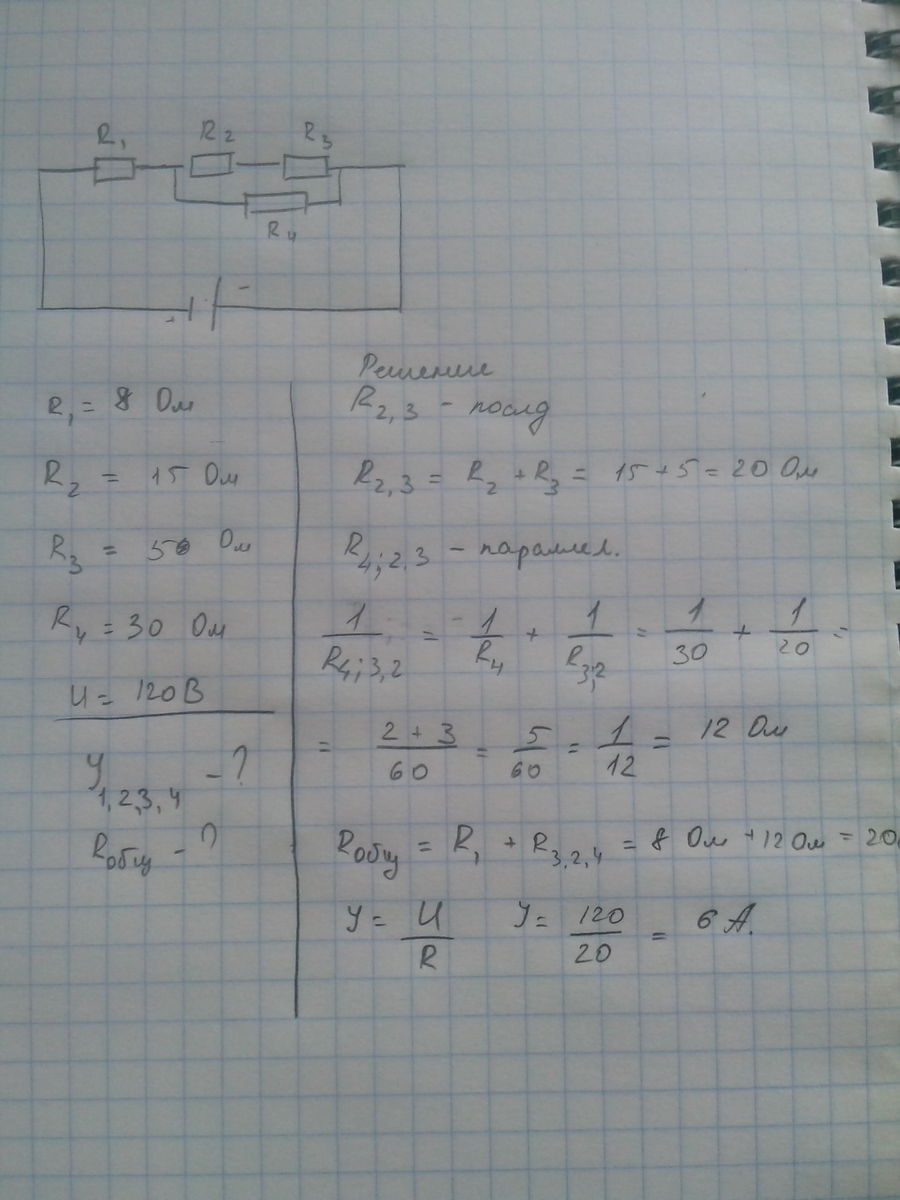 R₁ R₂ R₃
R₄
+ −
R₁ = 8 Ом
R₂ = 15 Ом
R₃ = 5 Ом
R₄ = 30 Ом
U = 120 В
У₁,₂,₃,₄ − ?
Rобщ − ?
Решение
R₂,₃ − послд
R₂,₃ = R₂ + R₃ = 15 + 5 = 20 Ом
R₄;₂,₃ − параллел.
1/R₄;₃,₂ = 1/R₄ + 1/R₃;₂ = 1/30 + 1/20 =
= (2 + 3)/60 = 5/60 = 1/12 = 12 Ом
Rобщ = R₁ + R₃,₂,₄ = 8 Ом + 12 Ом = 20
У = U/R У = 120/20 = 6 А.